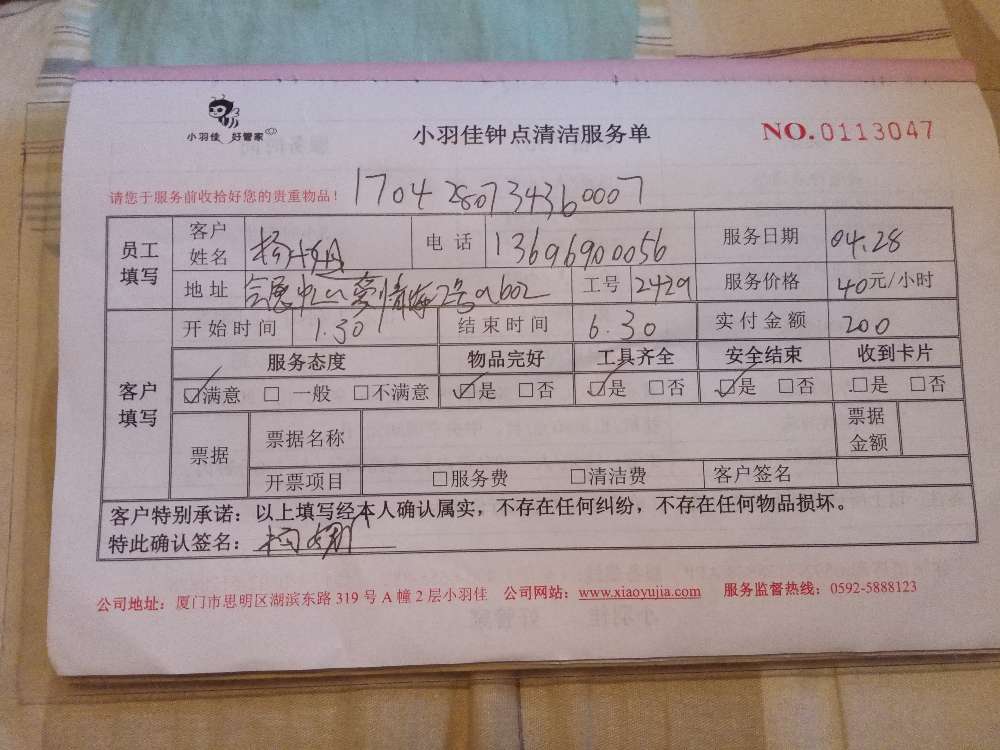 小羽佳 好管家
小羽佳钟点清洁服务单
NO.0113047
请您于服务前收拾好您的贵重物品！ 1704280734360007
员工填写 客户姓名 电话 13696900056 服务日期 04.28
地址 会展中心 2号 工号 2429 服务价格 40元/小时
客户填写 开始时间 1.30 结束时间 6.30 实付金额 200
服务态度 物品完好 工具齐全 安全结束 收到卡片
☑满意 □一般 □不满意 ☑是 □否 ☑是 □否 ☑是 □否 □是 □否
票据 票据名称 票据金额
开票项目 □服务费 □清洁费 客户签名
客户特别承诺：以上填写经本人确认属实，不存在任何纠纷，不存在任何物品损坏。
特此确认签名：
公司地址：厦门市思明区湖滨东路 319 号 A 幢 2 层小羽佳 公司网站：www.xiaoyujia.com 服务监督热线：0592-5888123